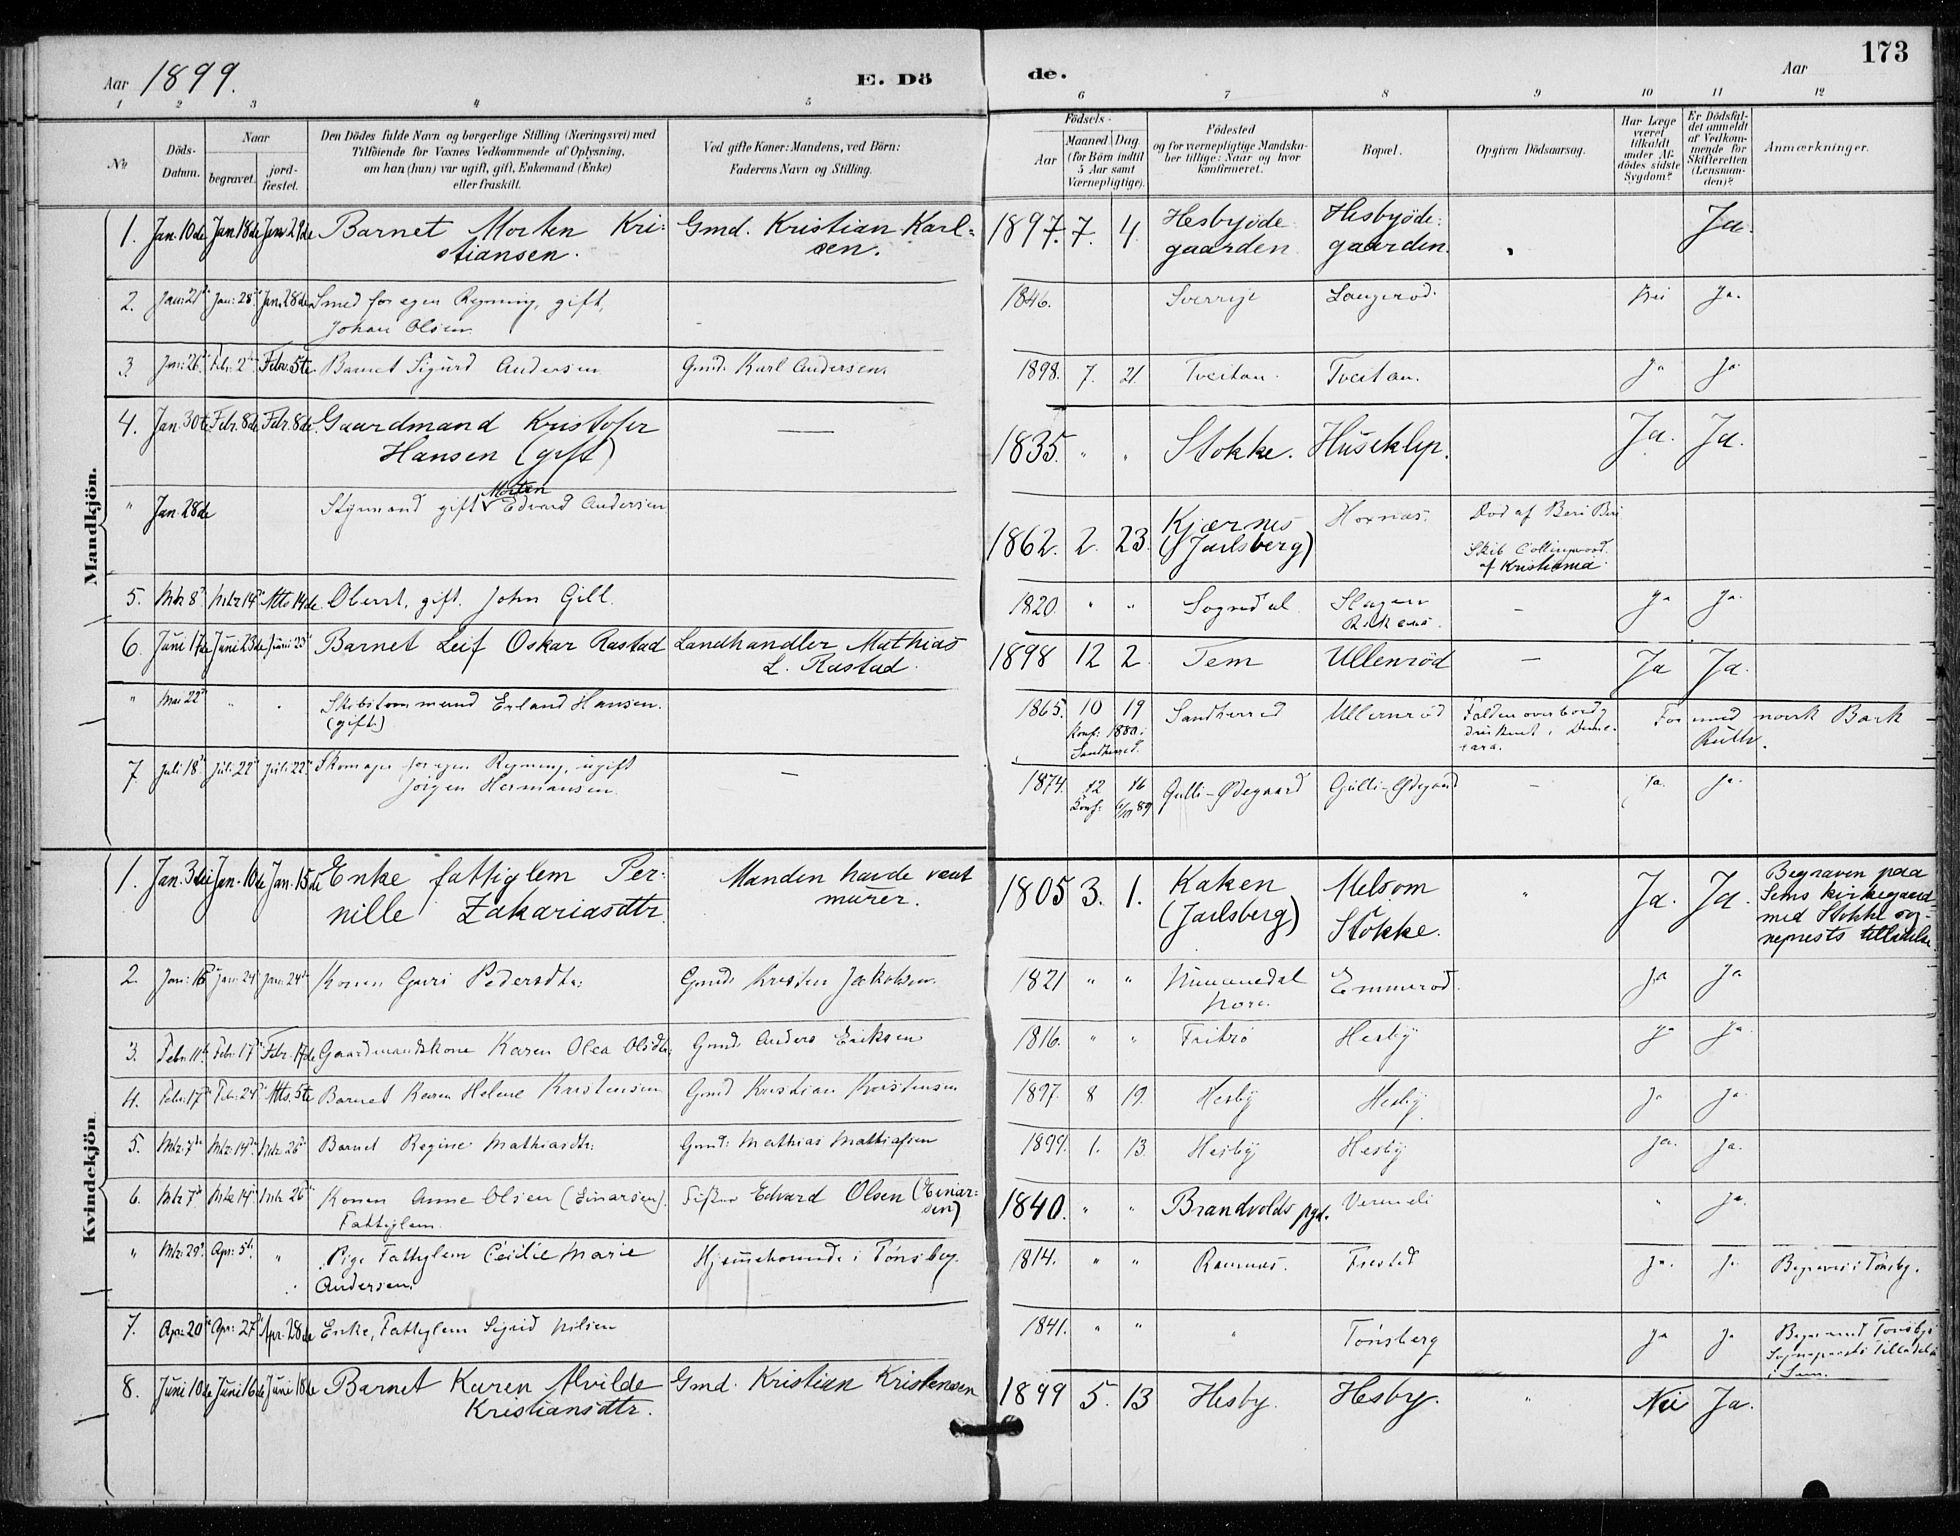 173
Aar 1899. E. Döde. Aar
1 2 3 4 5 6 7 8 9 10 11 12
No
Döds-Datum.
Naar
begravet.
jord-fæstet.
Den Dödes fulde Navn og borgerlige Stilling (Næringsvei) med
Tilföiende for Voxnes Vedkommende af Oplysning,
om han (hun) var ugift, gift, Enkemand (Enke)
eller fraskilt.
Ved gifte Koner: Mandens, ved Börn:
Faderens Navn og Stilling.
Födsels-
Aar
Maaned Dag
(for Börn indtil
5 Aar samt
Værnepligtige).
Födested
og for værnepligtige Mandska-
ber tillige: Naar og hvor
konfirmeret.
Bopæl.
Opgiven Dödsaarsag.
Har Læge
været
tilkaldt
under Af-
dödes sidste
Sygdom?
Er Dödsfal-
det anmeldt
af Vedkom-
mende for
Skifteretten
(Lensman-
den)?
Anmærkninger.
Mandkjön.
1. Jan. 10de Jan 18de Jan 29de Barnet Morten Kri- Gmd. Kristian Karl- 1897. 7. 4 Hesbyöde Hesbyöde- Ja.
stiansen. sen. gaarden gaarden.
2. Jan: 21 Jan: 28 Jan. 28de Smed for egen Regning, gift, 1846. Sverrige Langerød. Nei Ja.
Johan Olsen
3. Jan: 26 Febr: 2 Febr. 5te Barnet Sigurd Andersen Gmd. Karl Andersen. 1898. 7. 21. Tveitan. Tveitan. Ja Ja
4. Jan. 30te Febr. 8de Febr. 8de Gaardmand Kristofer — 1835. " " Stokke. Huseklep. Ja. Ja.
Hansen (gift)
" Jan. 28de Styrmand gift Morten Edvard Andersen 1862. 2. 23. Kjærnes (Jarlsberg) Hoxnas. Död af Beri Beri
Skib Collingwood
af Kristiania.
5. Mrz 8 Mrz 14 Mts 14de Oberst, gift. John Gill. 1820 " " Sogndal Slagen — Ja Ja.
6. Juni 17de Juni 23de Juni 25 Barnet Leif Oskar Rastad Landhandler Mathias 1898 12 2. Tem Ullenröd — Ja Ja.
L. Rastad.
" Mai 22 " " Skibstømmermand Erland Hansen. 1865. 10 19 Sandherred Ullernröd Falden overbord, For med norsk Bark
(gift) Konf: 1880. druknet i Deme- Ruth.
Sandherred. rara.
7. Juli 18 Juli 22 Juli 22 Skomager for egen Regning, ugift — 1874. 12 16 Gulli-Ødegaard Gulli-Ødegaard — Ja. Ja.
Jörgen Hermansen. Konf: 89
Kvindekjön
1. Jan. 3die Jan. 10de Jan. 15de Enke fattiglem Per- Manden havde vært 1805 3. 1. Kaken Melsom " Ja. Ja. Begraven paa
nille Zakariasdtr. murer. (Jarlsberg) i Stokke. Sems kirkegaard
med Stokke sog-
neprests tilladelse
2. Jan: 16 Jan: 24 Jan: 24 Konen Guri Pedersdtr: Gmd. Kristen Jakobsen. 1821 " " Nummedal Emmerød. Ja Ja
Nore.
3. Febr. 11 Febr. 17 Febr. 17de Gaardmandskone Karen Olea Olsdtr. Gmd. Anders Eriksen 1816. " " Fritzø Hesby Ja Ja
4. Febr: 17 Febr: 24 Mts. 5te Barnet Karen Helene Kristensen Gmd Kristian Kristensen 1897. 8 19. Hesby Hesby Ja Ja
5. Mrz: 7 Mrz: 14 Mrz 26 Barnet Regine Mathiasdtr: Gmd: Mathias Mathiassen 1899. 1. 13. Hesby Hesby Ja. Ja.
6. Mrz 7 Mrz 14 Mrz 26 Konen Anne Olsen (Einarsen). Edvard Olsen (Einar- 1840. " " Brandvolds pgd. " Ja.
Fattiglem. sen)
" Mrz. 29 Apr: 5 " Pige Fattiglem Cecilie Marie Hjemmehørende i Tönsberg. 1814. " " Ramnæs. Frested Ja. Ja. Begraves i Tönsbg.
Andersen.
7. Apr: 20 Apr: 27 Apr. 28de Enke, Fattiglem Sigrid Nilsen 1841. " " " Tönsberg Ja Ja Begr: med Tönsbgs
Sognepræsts Tilladelse
i Sem.
8. Juni 10de Juni 16de Juni 18de Barnet Karen Alvilde Gmd. Kristian Kristensen 1899 5. 13 Hesby. Hesby. " Nei Ja.
Kristiansdtr.